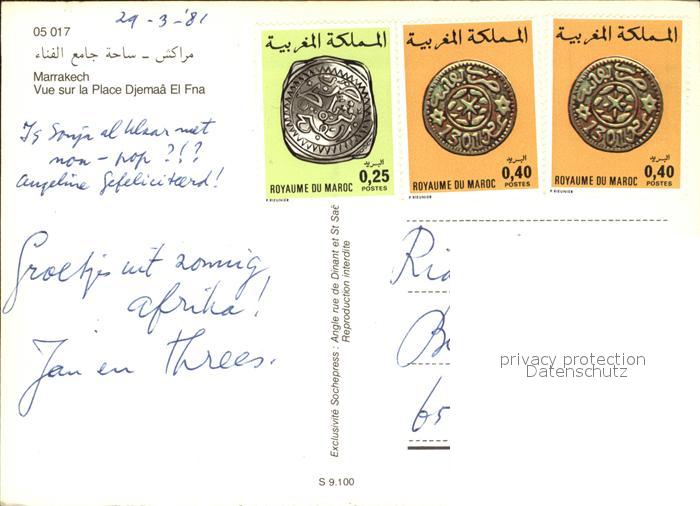 29-3-'81
05 017
مراكش ـ ساحة جامع الفناء
Marrakech
Vue sur la Place Djemaâ El Fna
Is Sonja al klaar met
non-pop ?!?
Angeline Gefeliciteerd!
Groetjes uit zonnig
afrika!
Jan en Threes.
المملكة المغربية
0,25
البريد
ROYAUME DU MAROC POSTES
P. BEQUNIER
المملكة المغربية
0,40
البريد
ROYAUME DU MAROC POSTES
المملكة المغربية
0,40
البريد
ROYAUME DU MAROC POSTES
Exclusivité Sochepress : Angle rue de Dinant et St Saë
Reproduction interdite
S 9.100
Ri
B
65
privacy protection
Datenschutz